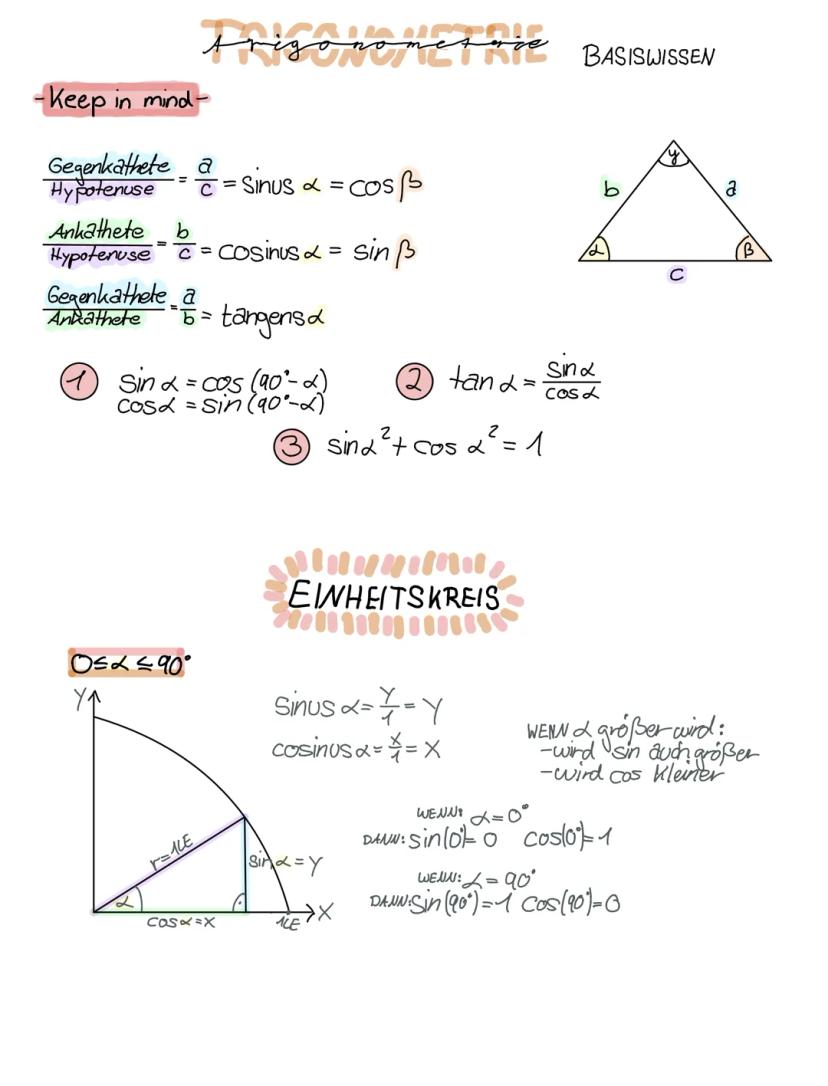 TRIGONOMETRIE
trigonometrie BASISWISSEN
-Keep in mind-
Gegenkathete / Hypotenuse = a/c = Sinus α = cos β
Ankathete / Hypotenuse = b/c = cosinus α = sin β
Gegenkathete / Ankathete = a/b = tangens α
γ
b a
α β
c
① Sin α = cos (90°-α)
cos α = sin (90°-α)
② tan α = sin α / cos α
③ sin α² + cos α² = 1
EINHEITSKREIS
0 ≤ α ≤ 90°
Y
r=1LE
α
sin α = Y
cos α = x
1LE
X
Sinus α = Y/1 = Y
cosinus α = x/1 = X
WENN α größer wird:
-wird sin auch größer
-wird cos kleiner
WENN: α = 0°
DANN: sin(0°)= 0 cos(0°)= 1
WENN: α = 90°
DANN: Sin(90°)=1 Cos(90°)=0